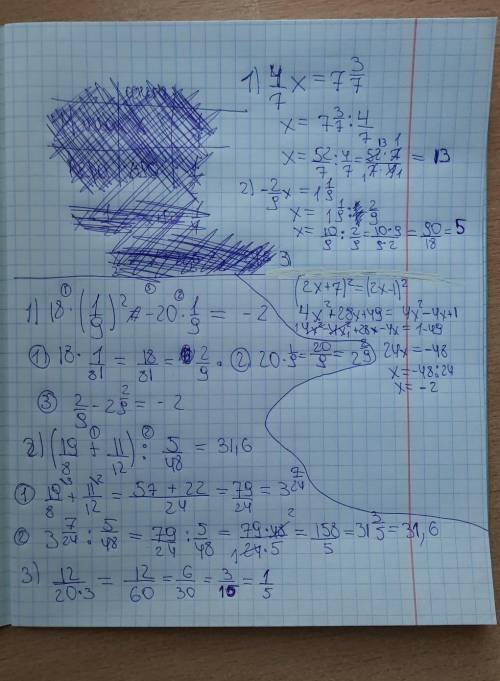 1) 4/7 x = 7 3/7
x = 7 3/7 : 4/7
x = 52/7 : 4/7 = 52·7/7·4 = 13
2) -2/9 x = 1 1/9
x = 1 1/9 : 2/9
x = 10/9 : 2/9 = 10·9/9·2 = 90/18 = 5
3)
(2x+7)² = (2x-1)²
4x²+28x+49 = 4x²-4x+1
4x²-4x²+28x-4x = 1-49
24x = -48
x = -48:24
x = -2
1) 18·(1/9)² - 20·1/9 = -2
① 18·1/81 = 18/81 = 2/9. ② 20·1/9 = 20/9 = 2 2/9
③ 2/9 - 2 2/9 = -2
2) (19/8 + 11/12) : 5/48 = 31,6
① 19/8 + 11/12 = 57+22/24 = 79/24 = 3 7/24
② 3 7/24 : 5/48 = 79/24 : 5/48 = 79·48/24·5 = 158/5 = 31 3/5 = 31,6
3) 12/20·3 = 12/60 = 6/30 = 3/15 = 1/5